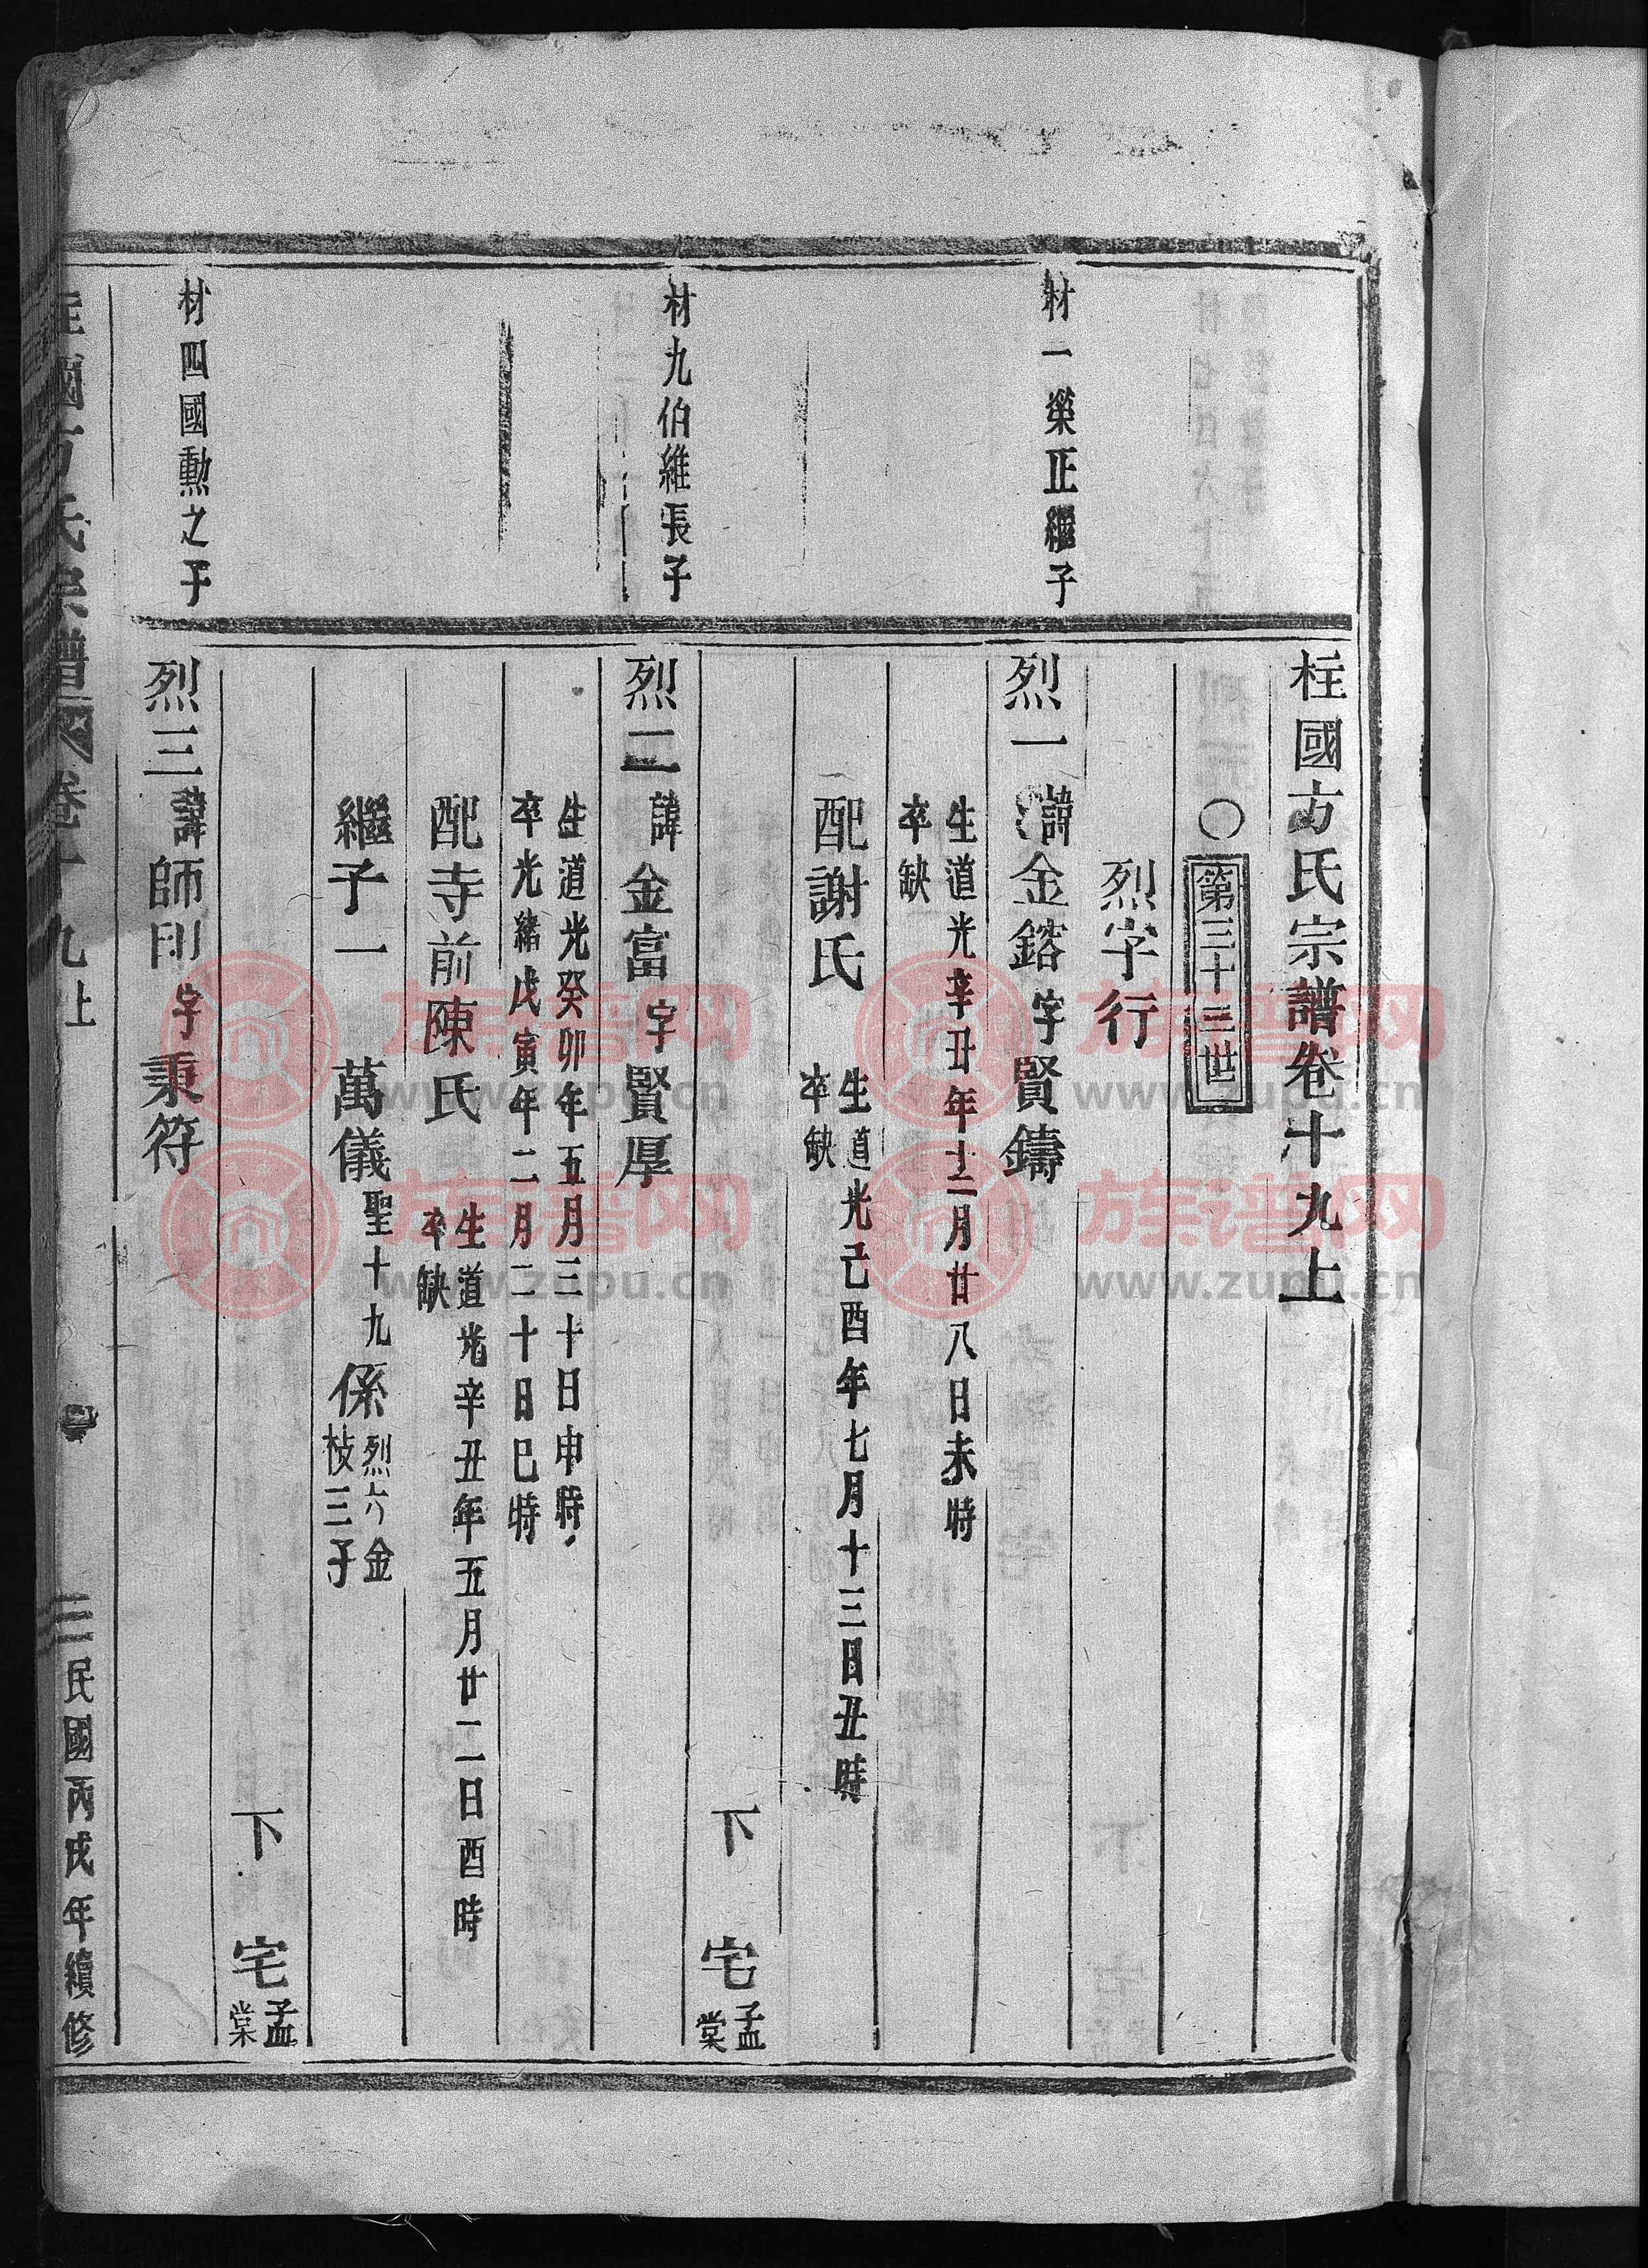 柱國方氏宗譜卷十九上
○第三十三世
烈字行
材一榮正繼子
烈一諱金鎔字賢鑄
生道光辛丑年十二月廿八日未時
卒缺
配謝氏
生道光己酉年七月十三日丑時
卒缺
下宅孟棠
材九伯維長子
烈二諱金富字賢厚
生道光癸卯年五月三十日申時
卒光緒戊寅年二月二十日巳時
配寺前陳氏
生道光辛丑年五月廿二日酉時
卒缺
繼子一 萬儀聖十九係烈六金枝三子
下宅孟棠
材四國勲之子
烈三諱師卽字秉符
柱國方氏宗譜 卷十九上
民國丙戌年續修
族谱网
www.zupu.cn
族谱网
www.zupu.cn
族谱网
www.zupu.cn
族谱网
www.zupu.cn